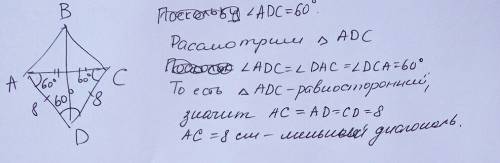 B
Поскольку ∠ADC=60°.
Рассмотрим △ ADC
∠ADC=∠DAC=∠DCA=60°
То есть △ADC-равносторонний,
значит AC=AD=CD=8
AC=8 см-меньшая диагональ.
A 60° 60° C
8 60° 8
D